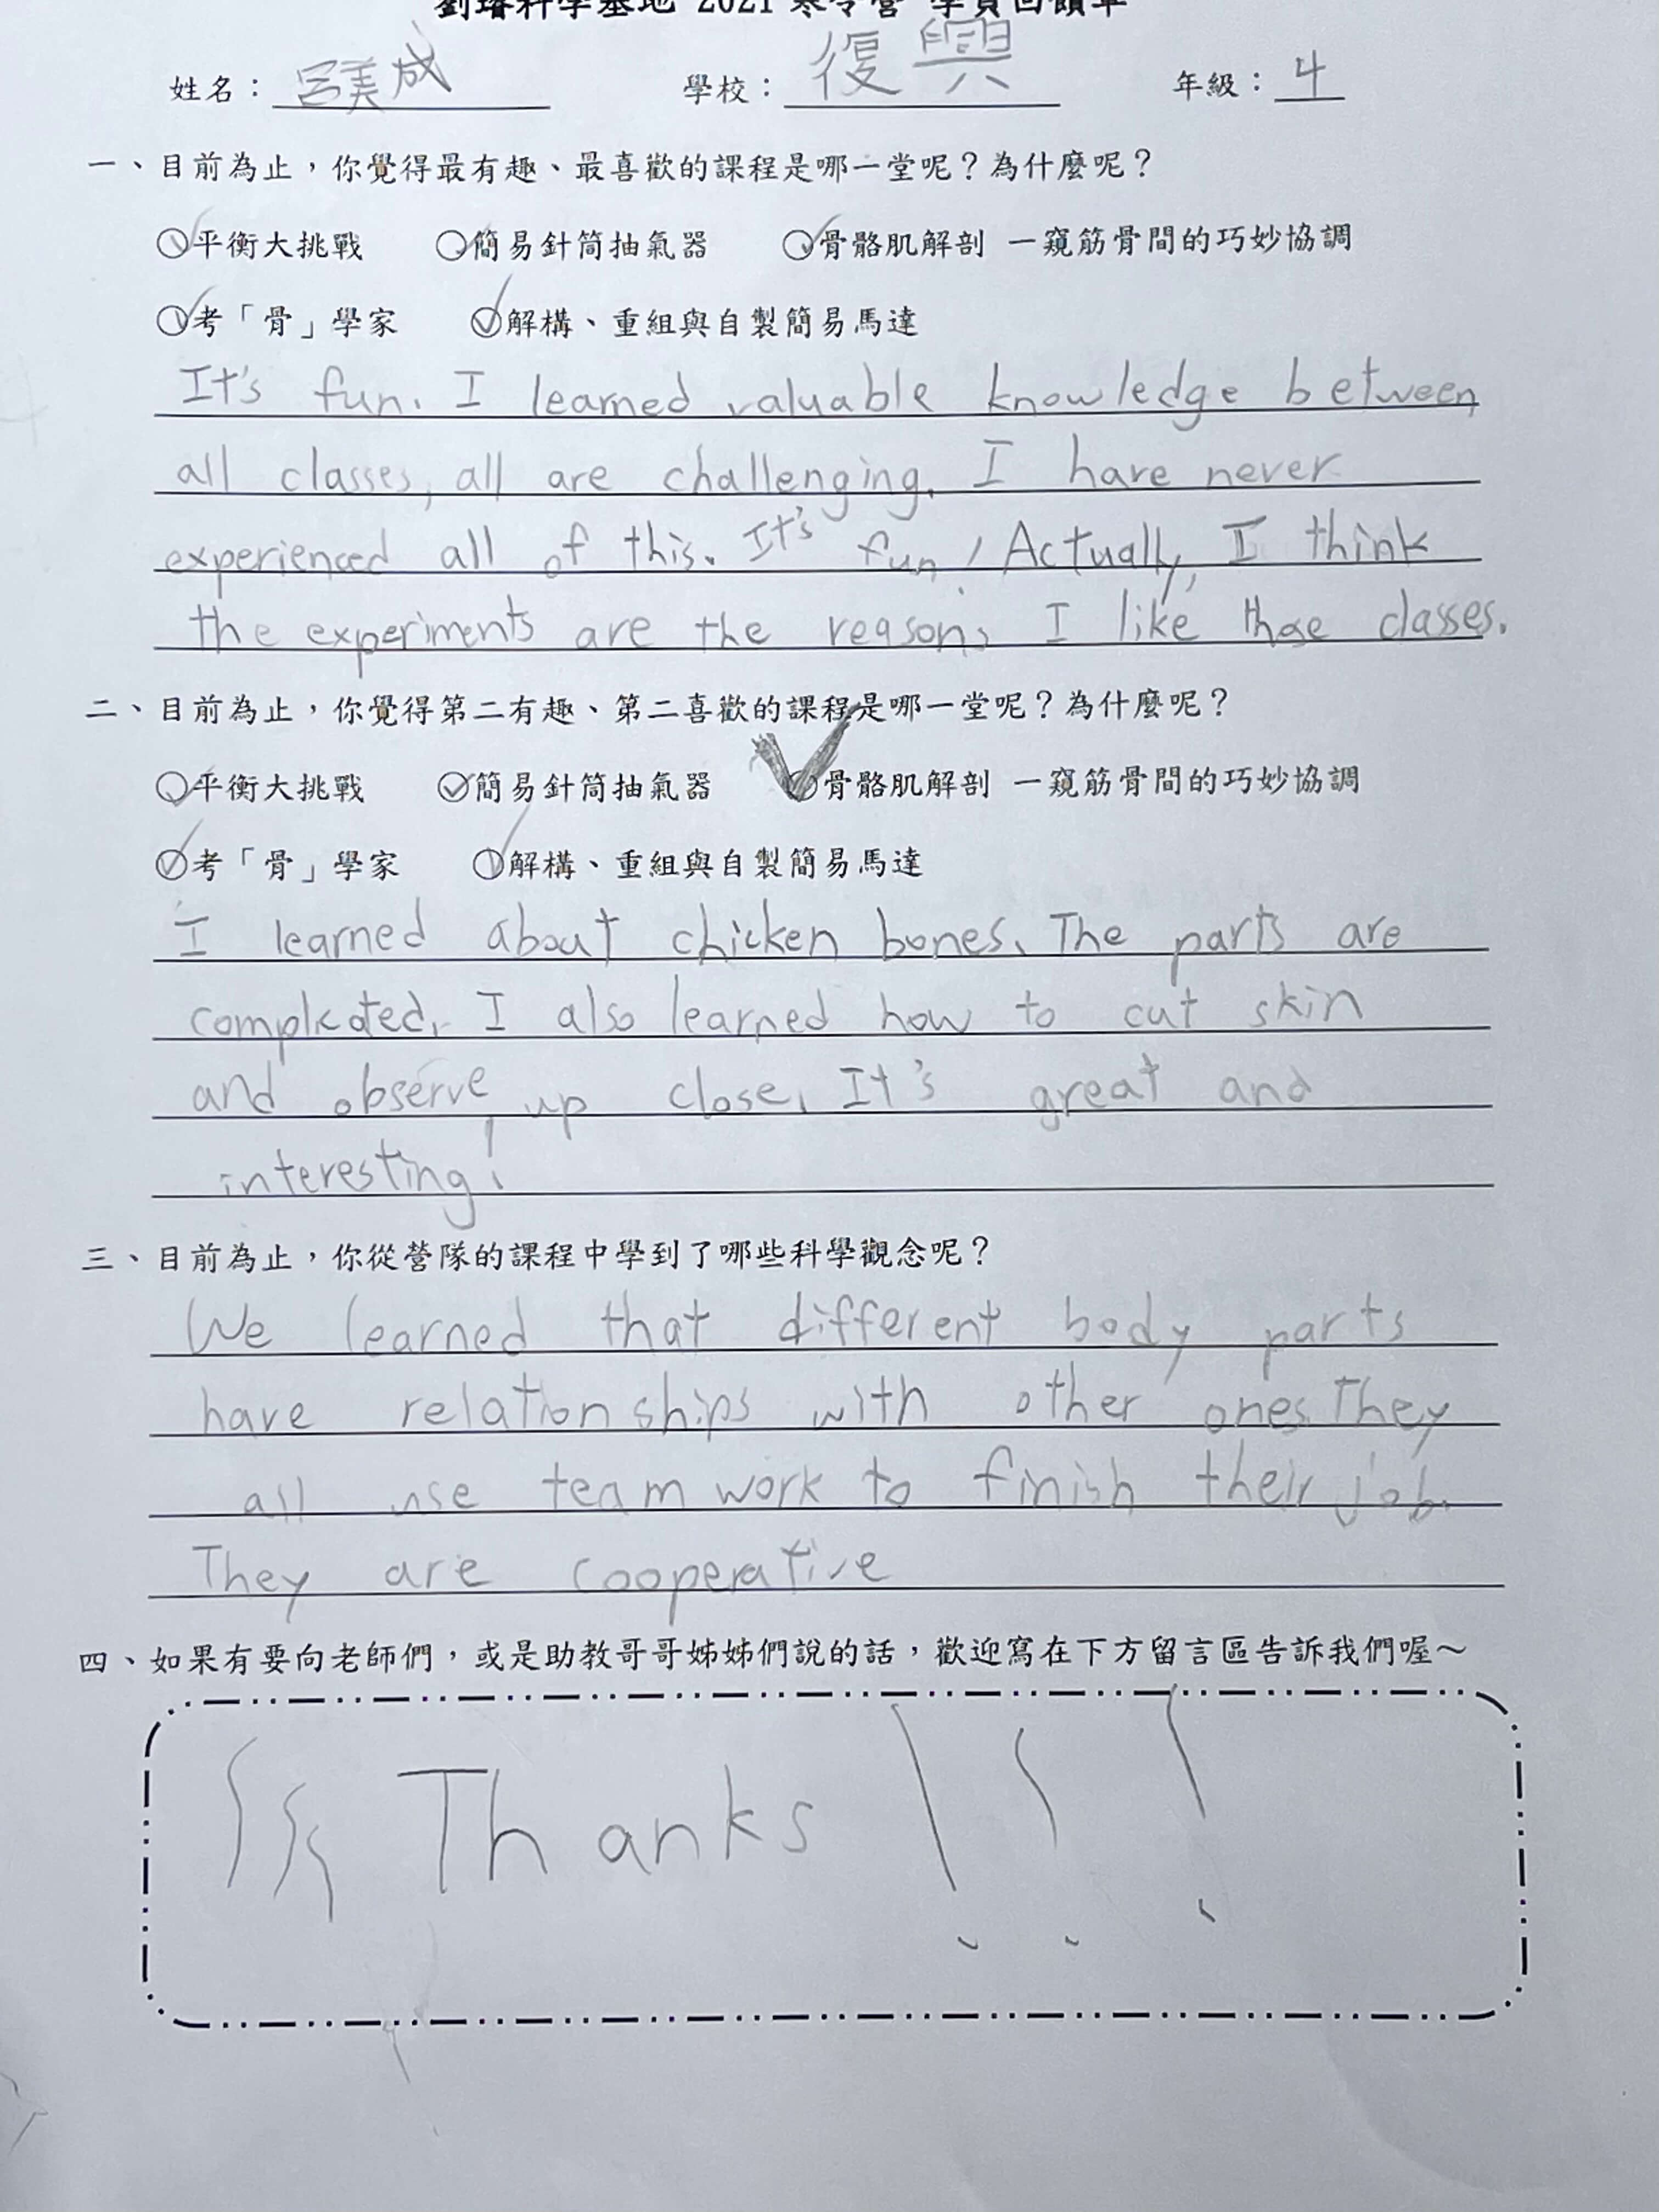 劉璿科學基地 2021 寒令營 學員回饋單
姓名： 呂美成 學校： 復興 年級： 4
一、目前為止，你覺得最有趣、最喜歡的課程是哪一堂呢？為什麼呢？
平衡大挑戰 簡易針筒抽氣器 骨骼肌解剖 一窺筋骨間的巧妙協調
考「骨」學家 解構、重組與自製簡易馬達
It's fun. I learned valuable knowledge between
all classes, all are challenging. I have never
experienced all of this. It's fun! Actually, I think
the experiments are the reasons I like those classes.
二、目前為止，你覺得第二有趣、第二喜歡的課程是哪一堂呢？為什麼呢？
平衡大挑戰 簡易針筒抽氣器 骨骼肌解剖 一窺筋骨間的巧妙協調
考「骨」學家 解構、重組與自製簡易馬達
I learned about chicken bones. The parts are
complicated. I also learned how to cut skin
and observe up close. It's great and
interesting!
三、目前為止，你從營隊的課程中學到了哪些科學觀念呢？
We learned that different body parts
have relationships with other ones. They
all use teamwork to finish their job.
They are cooperative
四、如果有要向老師們，或是助教哥哥姊姊們說的話，歡迎寫在下方留言區告訴我們喔～
Thanks !!!